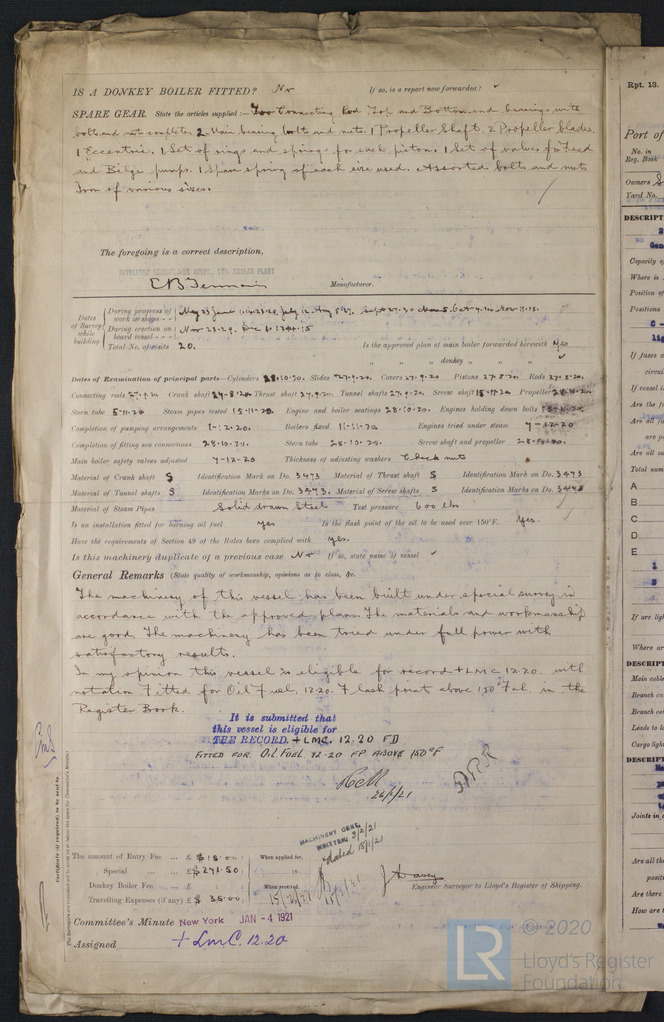 IS A DONKEY BOILER FITTED? No If so, is a report now forwarded? ✓
SPARE GEAR. State the articles supplied:— Two Connecting Rod Top and Bottom end bearings with
bolts and nuts complete. 2 Main bearing bolts and nuts. 1 Propeller Shaft. 2 Propeller blades.
1 Eccentric. 1 Set of rings and springs for each piston. 1 Set of valves for Feed
and Bilge pumps. 1 spare spring of each size used. Assorted bolts and nuts
Iron of various sizes.
The foregoing is a correct description,
Manufacturer.
Dates of Survey while building
During progress of work in shops - -
During erection on board vessel - - -
Total No. of visits 20.
Is the approved plan of main boiler forwarded herewith
" " " donkey " " " ✓
Dates of Examination of principal parts—Cylinders 28.10.20. Slides 27.9.20. Covers 27.9.20 Pistons 27.8.20. Rods 27.8.20.
Connecting rods 27.9.20 Crank shaft 24.8.20 Thrust shaft 27.9.20. Tunnel shafts 27.9.20. Screw shaft 15.11.20 Propeller 28.10.20.
Stern tube 5.11.20 Steam pipes tested 15.11.20. Engine and boiler seatings 28.10.20. Engines holding down bolts
Completion of pumping arrangements 1-12-20. Boilers fixed 11-11-20 Engines tried under steam 7-12-20
Completion of fitting sea connections 28.10.20. Stern tube 28.10.20. Screw shaft and propeller 28.10.20.
Main boiler safety valves adjusted 7-12-20 Thickness of adjusting washers Check nuts
Material of Crank shaft S Identification Mark on Do. 3473 Material of Thrust shaft S Identification Mark on Do. 3473
Material of Tunnel shafts S Identification Marks on Do. 3473. Material of Screw shafts S Identification Marks on Do.
Material of Steam Pipes Solid drawn Steel Test pressure 600 lbs
Is an installation fitted for burning oil fuel yes Is the flash point of the oil to be used over 150°F. Yes.
Have the requirements of Section 49 of the Rules been complied with yes.
Is this machinery duplicate of a previous case No If so, state name of vessel ✓
General Remarks (State quality of workmanship, opinions as to class, &c.
The machinery of this vessel has been built under special survey in
accordance with the approved plans. The materials and workmanship
are good. The machinery has been tried under full power with
satisfactory results.
In my opinion this vessel is eligible for record + LMC 12.20 with
notation Fitted for Oil Fuel, 12.20. Flash point above 150° Fah. in the
Register Book.
It is submitted that
this vessel is eligible for
THE RECORD. + LMC. 12.20 FD
FITTED FOR OIL FUEL 12.20 FP ABOVE 150°F
MACHINERY CERT.
WRITTEN 3/2/21
The amount of Entry Fee ... £ $ 15.00 When applied for,
Special ... £ $ 271.50
Donkey Boiler Fee ... £ When received,
Travelling Expenses (if any) £ $ 35.00
Engineer Surveyor to Lloyd's Register of Shipping.
Committee's Minute New York JAN - 4 1921
Assigned + LMC. 12.20
Rpt. 13.
Port of
No. in
Reg. Book
Owners
Yard No.
DESCRIPT
Capacity of
Where is
Position of
Positions
If fuses
circui
If vessel i
Are the f
Are all fu
are p
Are all
Total num
A
B
C
D
E
If are lig
Where ar
DESCRIPT
Main cable
Branch c
Branch cab
Leads to l
Cargo light
DESCRIPT
Joints in c
Are all th
positi
Are there
How are t
LR
© 2020
Lloyd's Register
Foundation